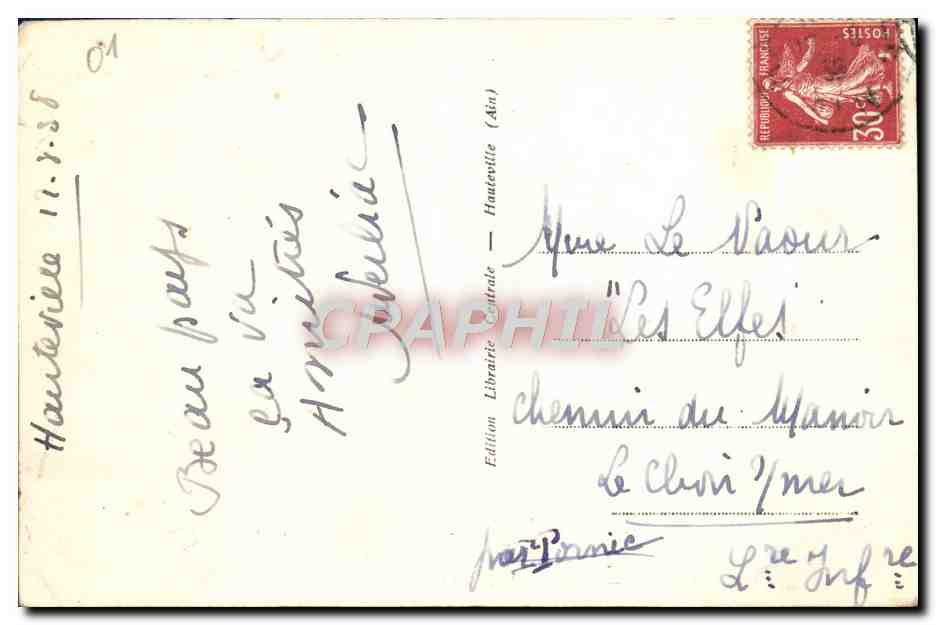 01
Hauteville 12.7.38
Beau pays
Ça va
Amitiés
Edition Librairie Centrale — Hauteville (Ain)
REPUBLIQUE FRANCAISE
POSTES
30c
CPAPHIL
Mme Le Vaour
"Les Elfes"
Chemin du Manoir
Le Clion s/mer
par Pornic
Lre Infre